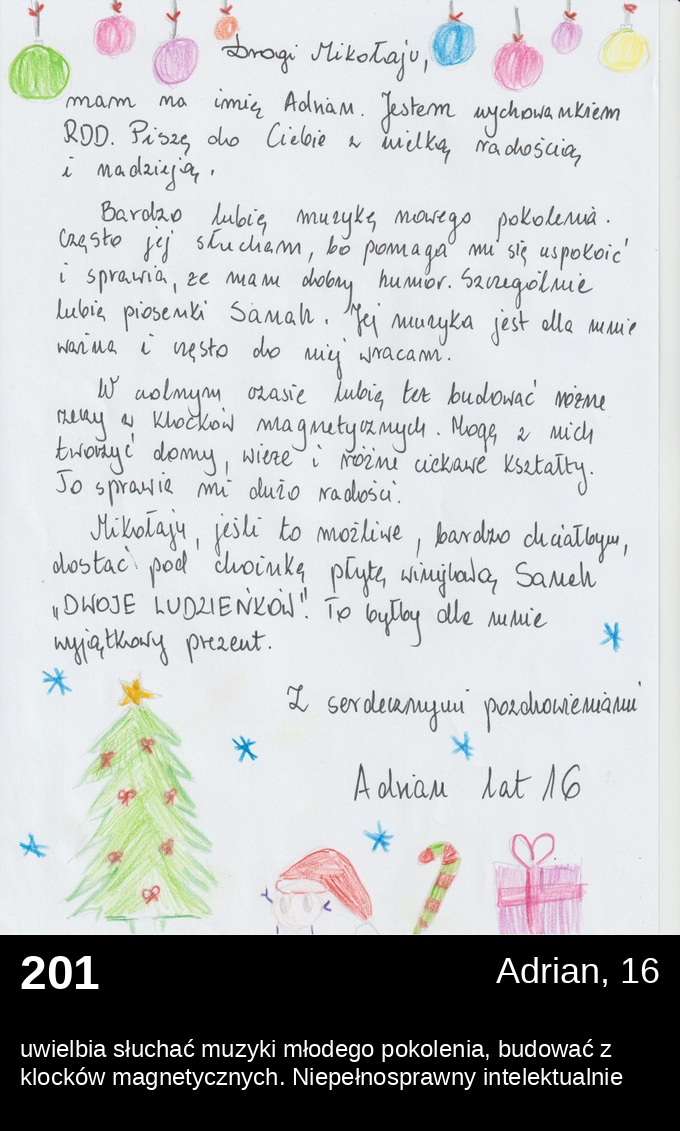 Drogi Mikołaju,
mam na imię Adrian. Jestem wychowankiem
RDD. Piszę do Ciebie z wielką radością
i nadzieją.
Bardzo lubię muzykę nowego pokolenia.
Często jej słucham, bo pomaga mi się uspokoić
i sprawia, że mam dobry humor. Szczególnie
lubię piosenki Sanah. Jej muzyka jest dla mnie
ważna i często do niej wracam.
W wolnym czasie lubię też budować różne
rzeczy z klocków magnetycznych. Mogę z nich
tworzyć domy, wieże i różne ciekawe kształty.
To sprawia mi dużo radości.
Mikołaju, jeśli to możliwe, bardzo chciałbym,
dostać pod choinkę płytę winylową Saneh
„DWOJE LUDZIEŃKÓW". To byłby dla mnie
wyjątkowy prezent.
Z serdecznymi pozdrowieniami
Adrian lat 16
201
Adrian, 16
uwielbia słuchać muzyki młodego pokolenia, budować z
klocków magnetycznych. Niepełnosprawny intelektualnie